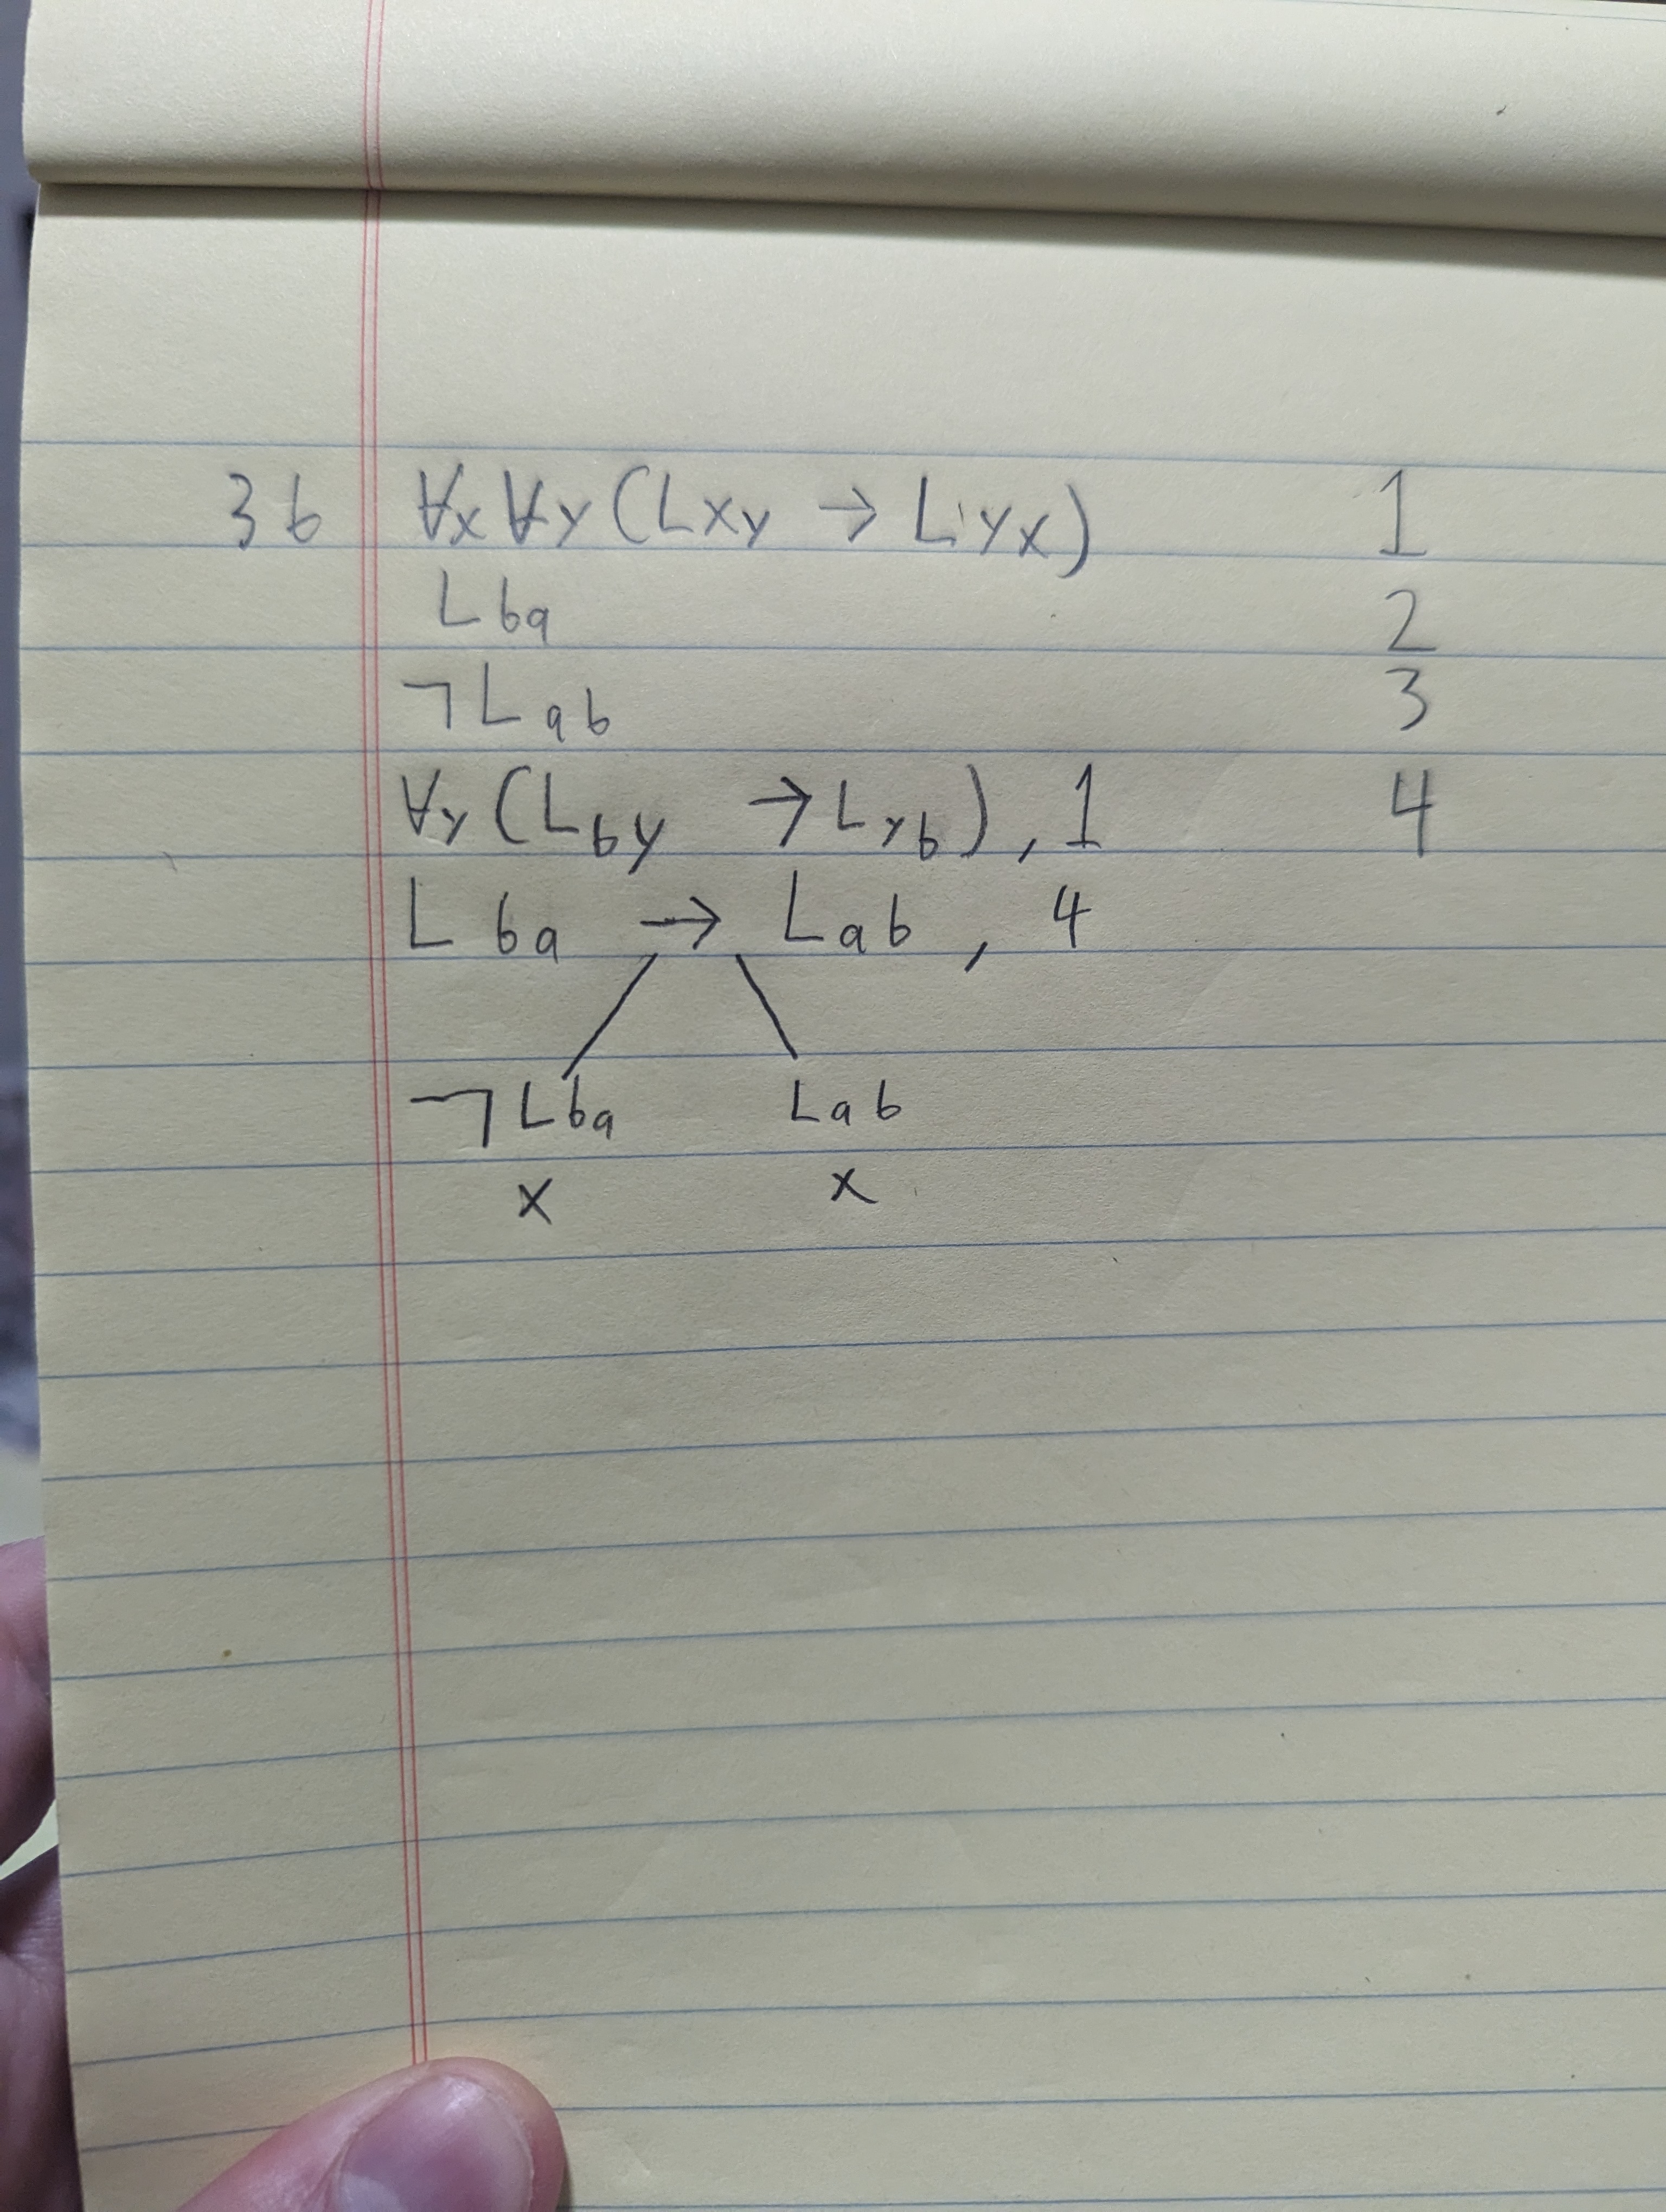 3b ∀x∀y(Lxy → Lyx) 1
Lba 2
¬Lab 3
∀y(Lby → Lyb), 1 4
Lba → Lab, 4
¬Lba Lab
x x